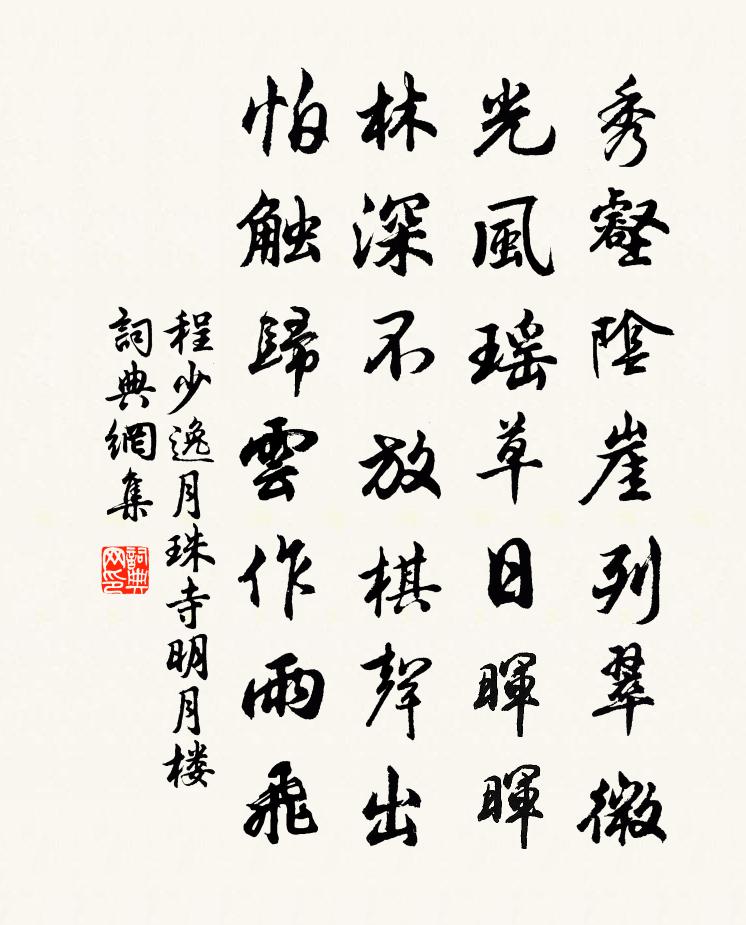 秀壑陰崖列翠微
光風瑶草日暉暉
林深不放棋聲出
怕触歸雲作雨飛
程少逸月珠寺明月楼
詞典網集
詞典网印